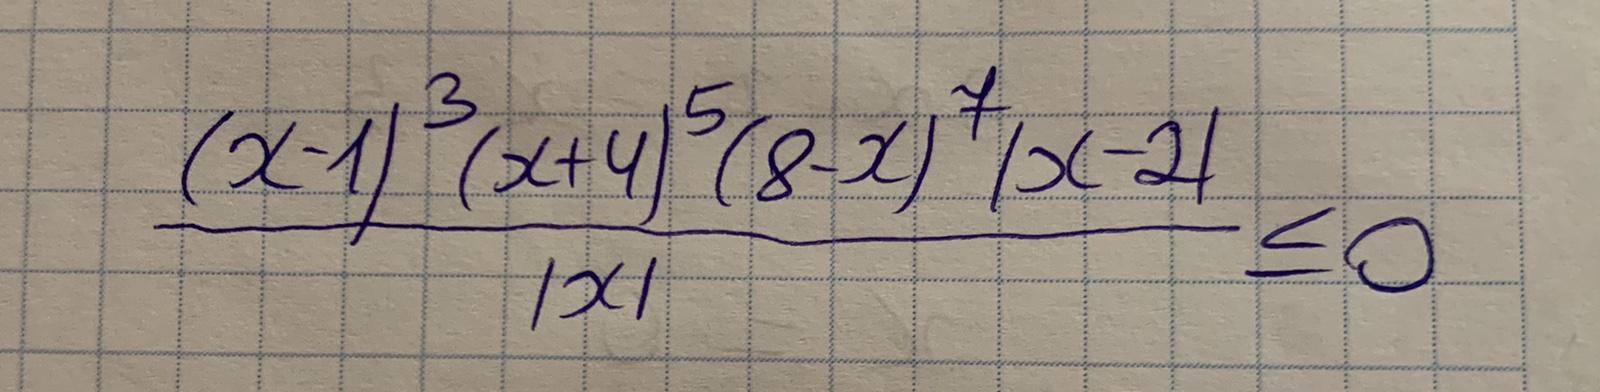 (x-1)³(x+4)⁵(8-x)⁷|x-2|
|x|
≤0